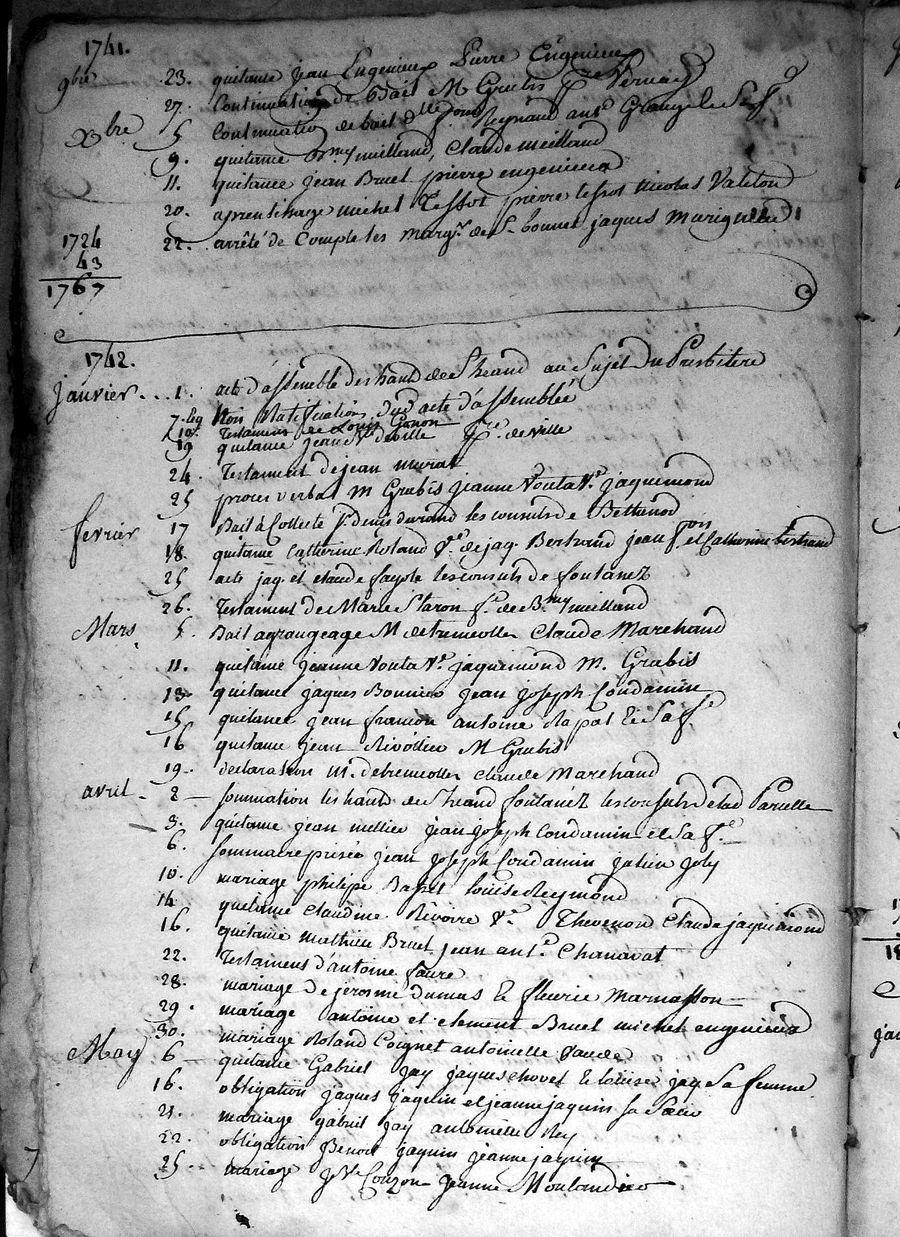 1741.
9bre 23. quitance jean Engenieux Pierre Engenieux
27. Continuation de bail M Grubis Vernay
Xbre 5 Continuation de bail Reynaud ant Grange le
9. quitance Bmy meilland, Claude meilland
11. quitance jean Bruel pierre engenieux
20. aprentissage michel Tessot pierre tessot nicolas Valeton
22. arrêté de Compte les margrs de St bonnet jaques
1724
43
1767
1742.
janvier 1. acte d'assemblé des haut de St heand au Sujet Du Presbitere
7. Ratification dud acte d'assemblée
10. Testament de Louis Ganon
19 quitance jean deville de ville
24. Testament de jean murat
25 procès verbal M Grubis jeanne Vouta Ve jaquemond
fevrier 17 Bail à Collecte denis durand les consuls de
18. quitance Catherine Roland Ve de jaq. Bertrand jean et Catherine bertrand
25 acte jaq. et claude fayole les consuls de fontanez
26. Testament de Marie Staron fe de Bmy meilland
Mars 5. Bail a grangeage M de tremeolles Claude Marchand
11. quitance jeanne Vouta Ve jaquemond M. Grubis
13. quitance jaques Bonnier jean joseph Condamin
15 quitance jean francon antoine Rapat et Sa fe
16 quitance jean Rivollier M Grubis
19. declaration M. de tremeolles claude Marchand
avril 2 sommation les hauts de St heand fontanez les consuls de lad Parcelle
3. quitance jean mellier jean joseph Condamin et Sa fe
6. Sommaire prisée jean joseph Condamin julien joly
10. mariage philipe Basset louise Reymond
14. quitance Claudine Revoire Ve Thevenon Claude jaquemond
16. quitance mathieu Bruel jean ant. Chanavat
22. Testament d'antoine faure
28. mariage de jerosme dumas et fleurie Marnasson
29. mariage antoine et clement Bruel michel engenieux
30. mariage Roland Coignet antoinette
May 6 quitance Gabriel jay jaques chovet et louise jay Sa femme
16. obligation jaques jaquin et jeanne jaquin sa Sœur
21. mariage gabriel jay antoinette Rey
22. obligation Benoit jaquin jeanne jaquin
25 mariage Couzon jeanne Moulandier